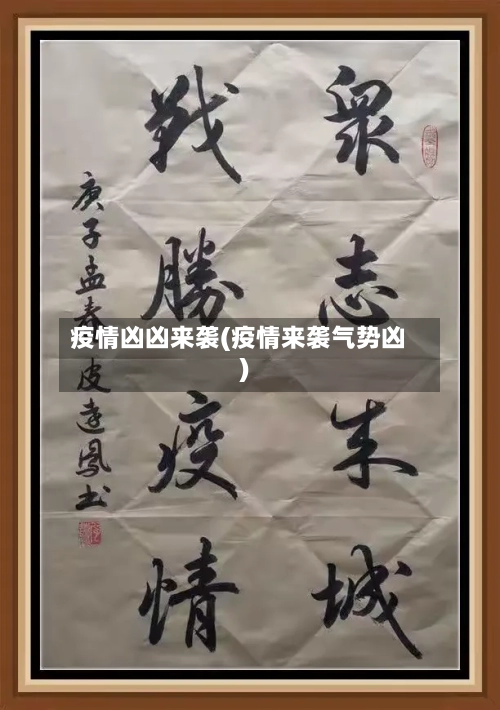 衆志成城
戰勝疫情
庚子孟春皮達鳳书
疫情凶凶来袭(疫情来袭气势凶
)